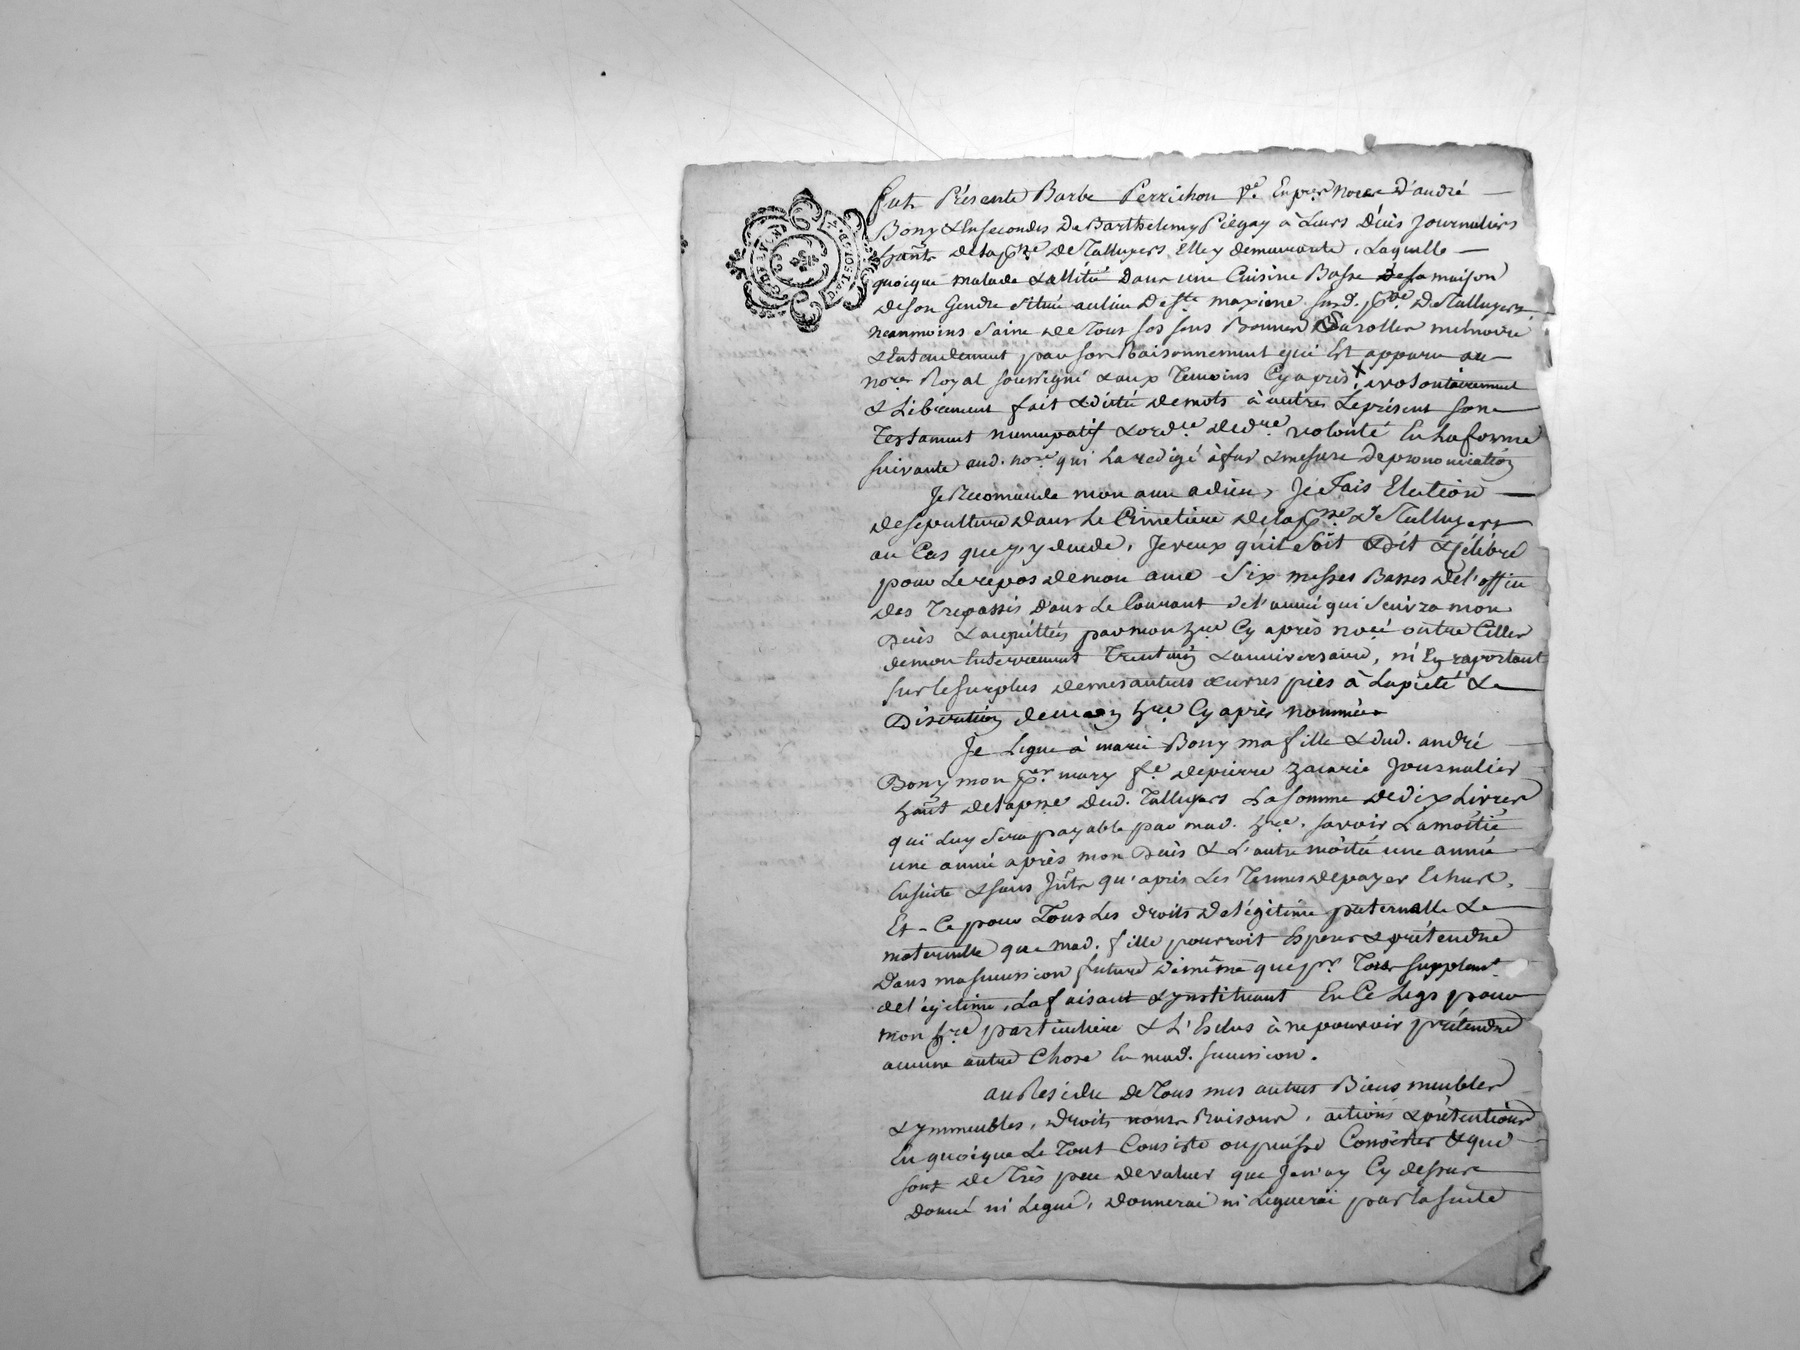 fut Présente Barbe Perrichon ve. En pres. noces d'andré
Bony & En secondes De Barthelemy Piégay à Leurs Décès Journaliers
hants. de la psse. de Talluyers Elle y demeurante, Laquelle
quoique malade & allitée Dans une Cuisine Basse de la maison
de son Gendre située au lieu De ste. maxime sus d. psse. De Talluyers
neanmoins saine de Tous ses sens Bonnes parolles mémoire
& Entendement par son Raisonnement qui Est apparu au
nore. Royal soussigné & aux Temoins Cy après, volontairement
& Librement fait & dicté de mots à autres Le présent son
Testament nuncupatif & ordre. de dre. volonté En La forme
suivante aud. nore. qui La redigé à fur & mesure De prononciation
Je Recommande mon ame a dieu, Je fais Election
de sepulture dans Le Cimetiere de la psse. de Talluyers
au Cas que j'y decede, Je veux qu'il soit Dit & Célébré
pour Le repos de mon ame six messes Basses de l'office
des Trepassés Dans Le Courant de l'année qui suivra mon
Decès & acquittées par mon hre. Cy après nomé outre Celles
de mon Enterrement Trentain & anniversaire, m'En raportant
sur le surplus de mes autres œuvres pies à La pieté &
Discretion de mon hre. Cy après nommée
Je Legue à marie Bony ma fille & dud. andré
Bony mon per. mary fe. de pierre Zacarie Journalier
hant. de la psse. dud. Talluyers La somme de dix Livres
qui Luy sera payable par mad. hre. savoir La moitié
une année après mon Decès & L'autre moitié une année
Ensuite & sans Ints. qu'après Les Termes de payer Echus.
Et Ce pour Tous Les droits De légitime paternelle &
maternelle que mad. fille pourroit Esperer & prétendre
Dans ma succession future de même que pr. Tous supplemt.
de légitime, La faisant & instituant En Ce Legs pour
mon hre. particuliere & L'Exclus à ne pouvoir prétendre
aucune autre Chose En mad. succession.
au Residu De Tous mes autres Biens meubles
& ymmeubles, Droits noms Raisons, actions & prétentions
En quoique Le Tout Consiste ou puisse Consister & qui
sont de Très peu de valeur que Je n'ay Cy dessus
Donné ni Legué, Donnerai ni Leguerai par la suite